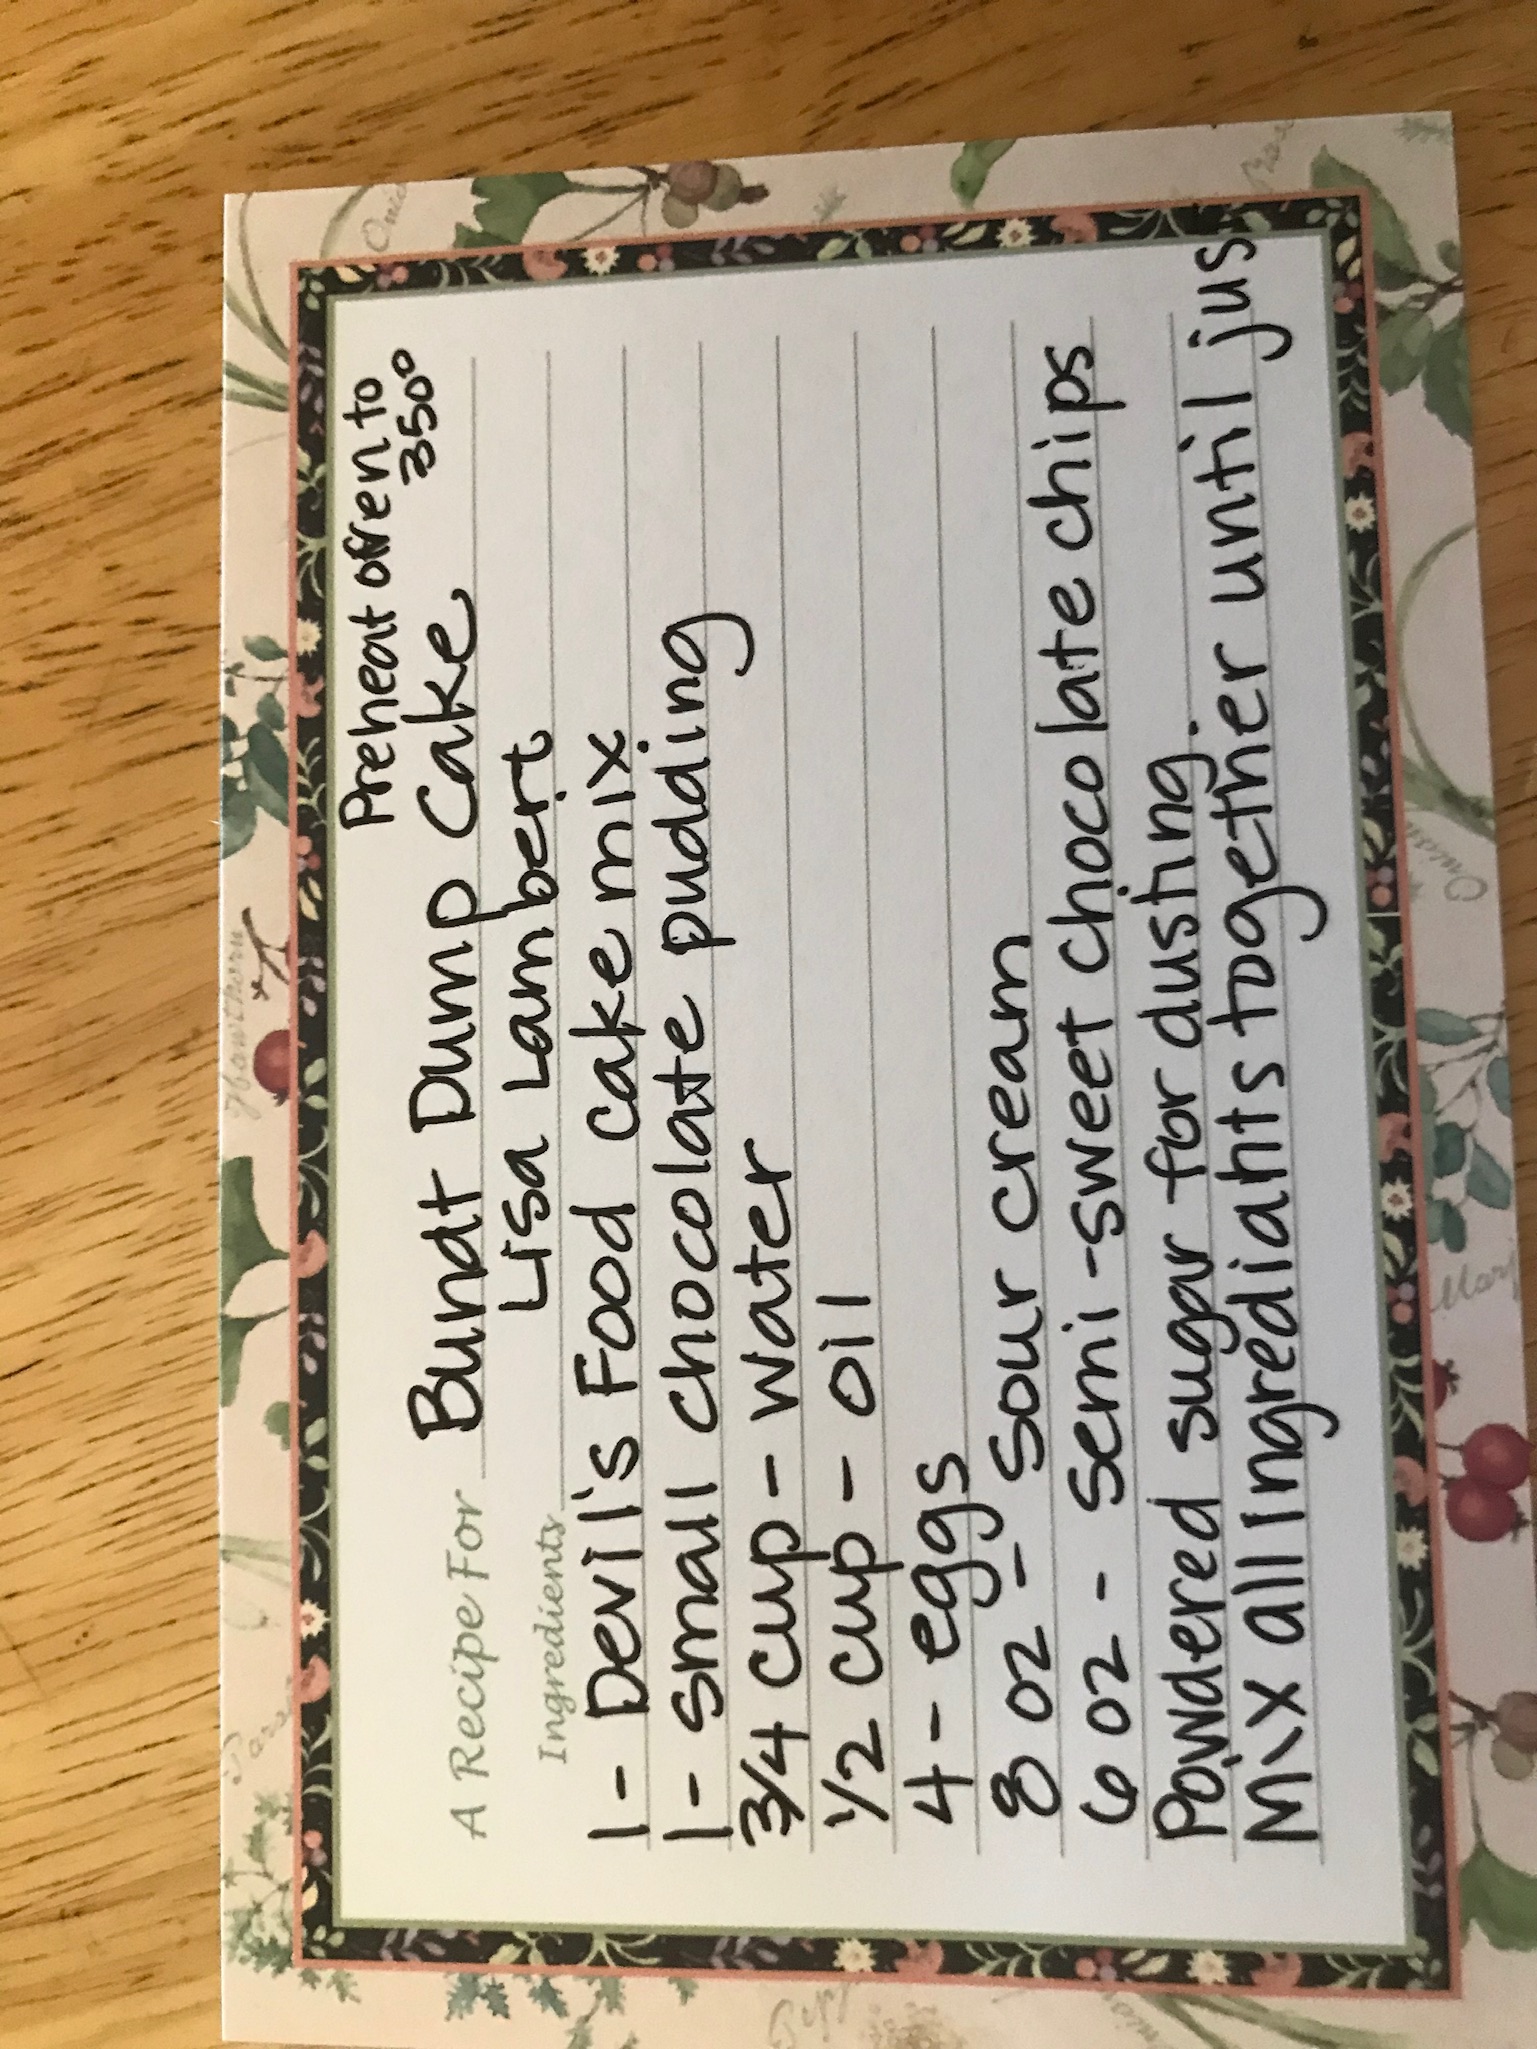 Preheat oven to
350°
A Recipe For Bundt Dump Cake
Lisa Lambert
Ingredients
1 - Devil's Food cake mix
1 - small chocolate pudding
3/4 cup - water
1/2 cup - oil
4 - eggs
8 oz - sour cream
6 oz - semi-sweet chocolate chips
Powdered sugar for dusting.
Mix all Ingrediahts together until jus
Hawthorn
Onion